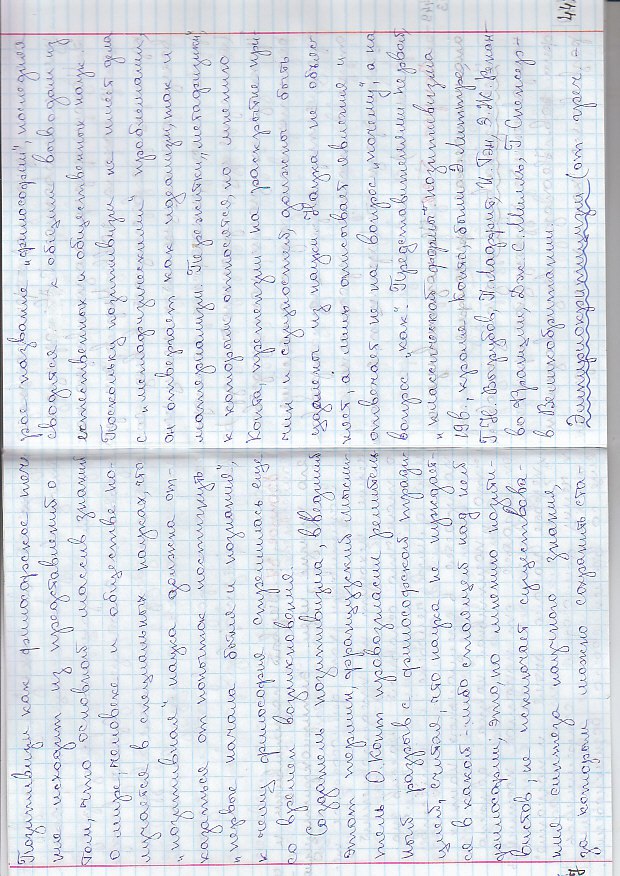 Позитивизм как философское тече
ние исходит из представлений о
том, что основной массив знаний
о мире, человеке и обществе по-
лучается в специальных науках, что
„позитивная" наука должна от-
казаться от попыток постигнуть
„первые начала бытия и познания",
к чему философия стремилась еще
со времен возникновения.
Создатель позитивизма, введший
этот термин, французский мысли-
тель О. Конт провозгласил решитель
ный разрыв с философской тради-
цией, считая, что наука не нуждает-
ся в какой-либо стоящей над ней
философии; это, по мнению позити-
вистов, не исключает существова-
ния синтеза научного знания,
за которым можно сохранить ста-
рое название „философии", последняя
сводится к общим выводам из
естественных и общественных наук.
Поскольку позитивизм не имеет дела
с „метафизическими" проблемами,
он отвергает как идеализм, так и
материализм. Пережитки „метафизики",
к которым относятся, по мнению
Конта, претензии на раскрытие при
чин и сущностей, должны быть
удалены из науки. Наука не объяс
няет, а лишь описывает явления и
отвечает не на вопрос „почему", а на
вопрос „как". Представителями первой,
„классической формы" позитивизма
19в., кроме Конта, были Э. Литтре,
Г. Н. Вырубов, П. Лаффит, И. Тэн, Э. Ж. Ренан-
во Франции, Дж. С. Милль, Г. Спенсер-
в Великобритании.
Эмпириокритицизм (от греч -
44